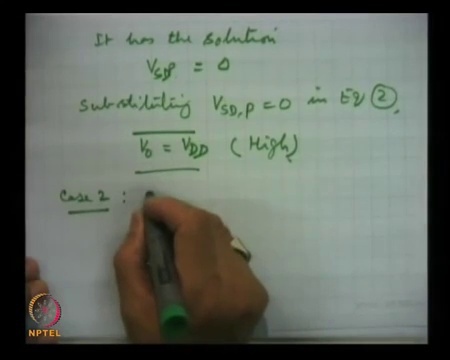 It has the solution
VSDP = 0
Substituting VSD,P = 0 in Eq ②,
V0 = VDD (High)
Case 2 :
NPTEL